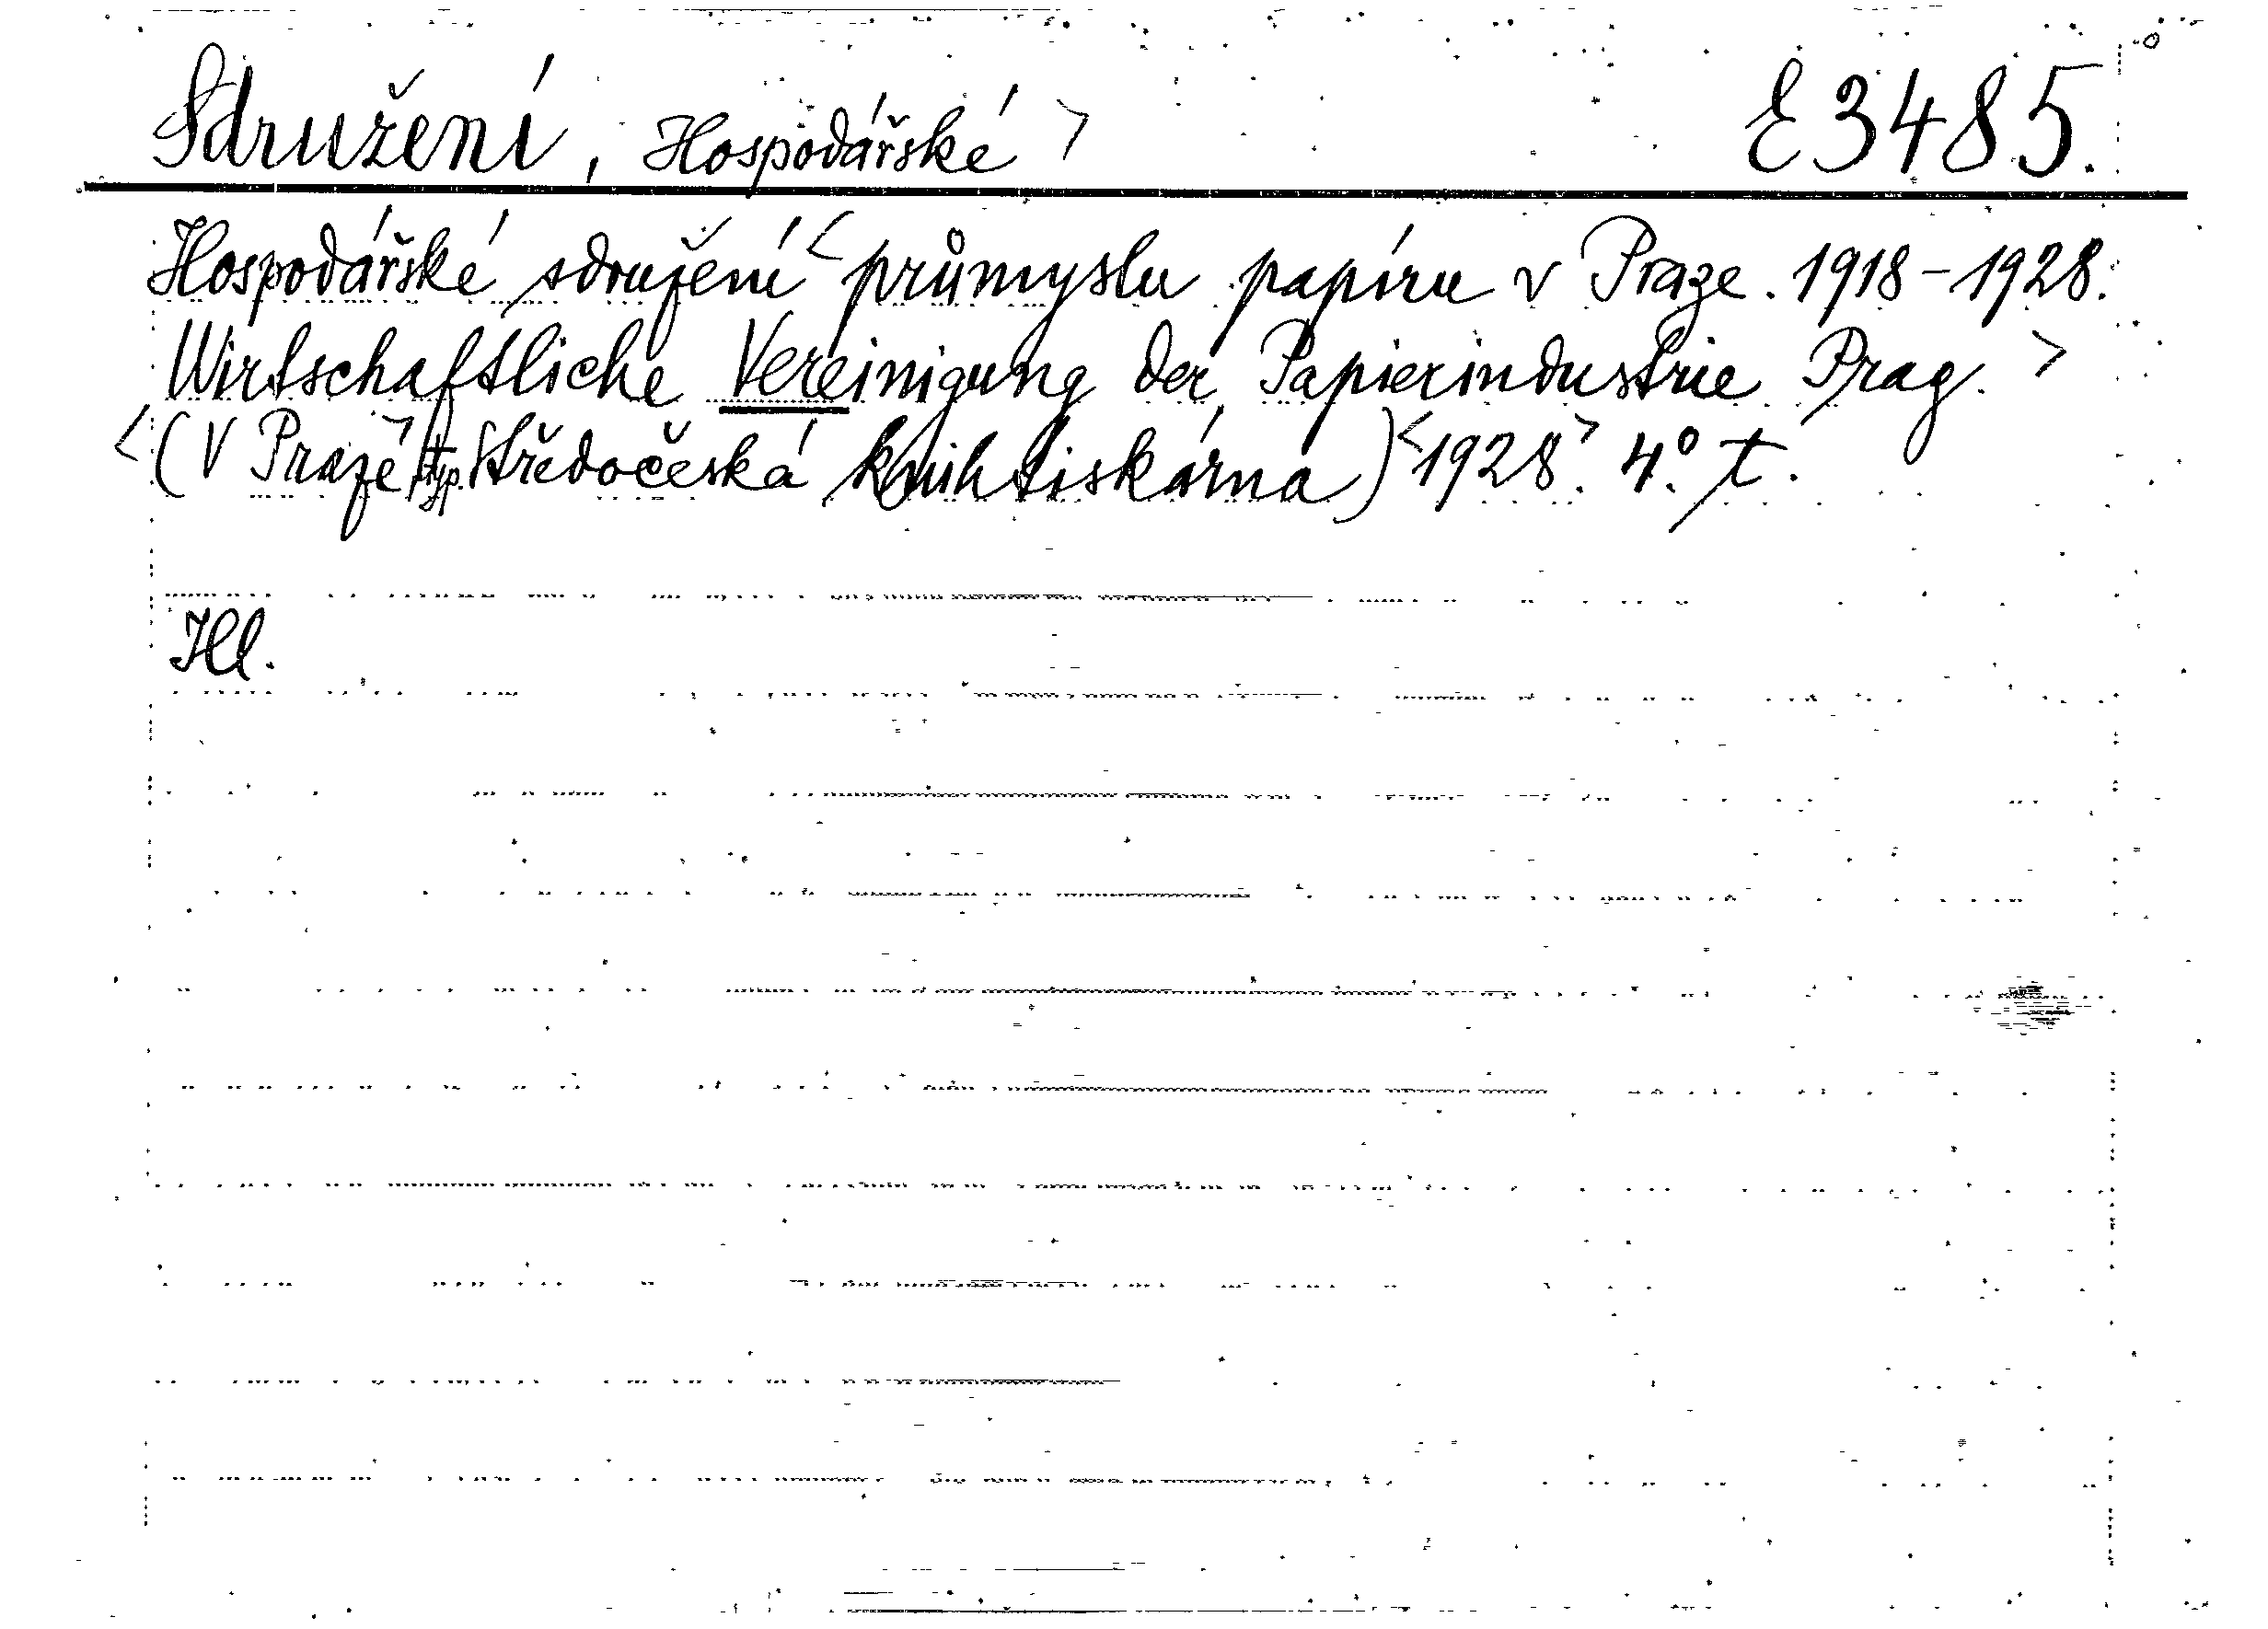 Sdružení, Hospodářské > E 3485.
Hospodářské sdružení < průmyslu papíru v Praze. 1918-1928.
Wirtschaftliche Vereinigung der Papierindustrie Prag. >
< (V Praze > typ. Středočeská knihtiskárna) < 1928. > 4.° t.
Hl.